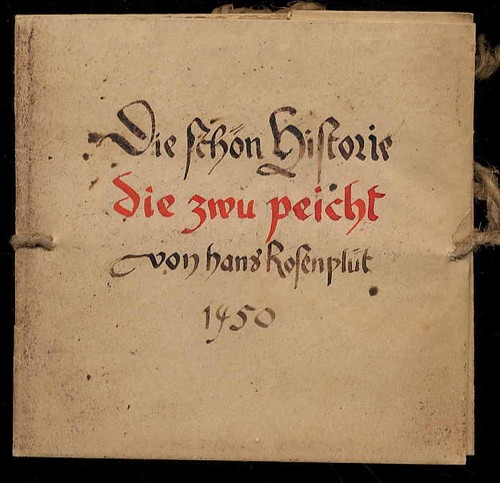 Die schön Historie
die zwu peicht
von hans Rosenplüt
1450